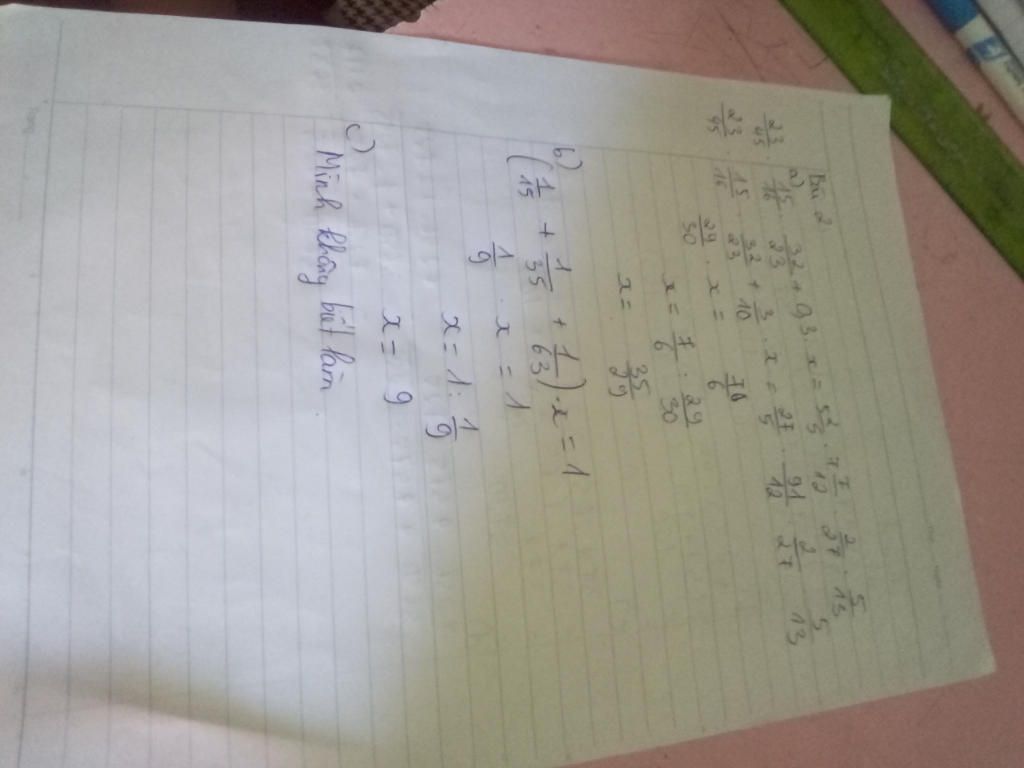 Bài 2
a)
23/45 . 15/16 . 32/23 + 0,3 . x = 5 2/5 . 7 7/12 . 2/27 . 5/13
23/45 . 15/16 . 32/23 + 3/10 . x = 27/5 . 91/12 . 2/27 . 5/13
29/30 . x = 7/6
x = 7/6 : 29/30
x = 35/29
b)
(1/15 + 1/35 + 1/63) . x = 1
1/9 . x = 1
x = 1 : 1/9
x = 9
c)
Mình không biết làm .